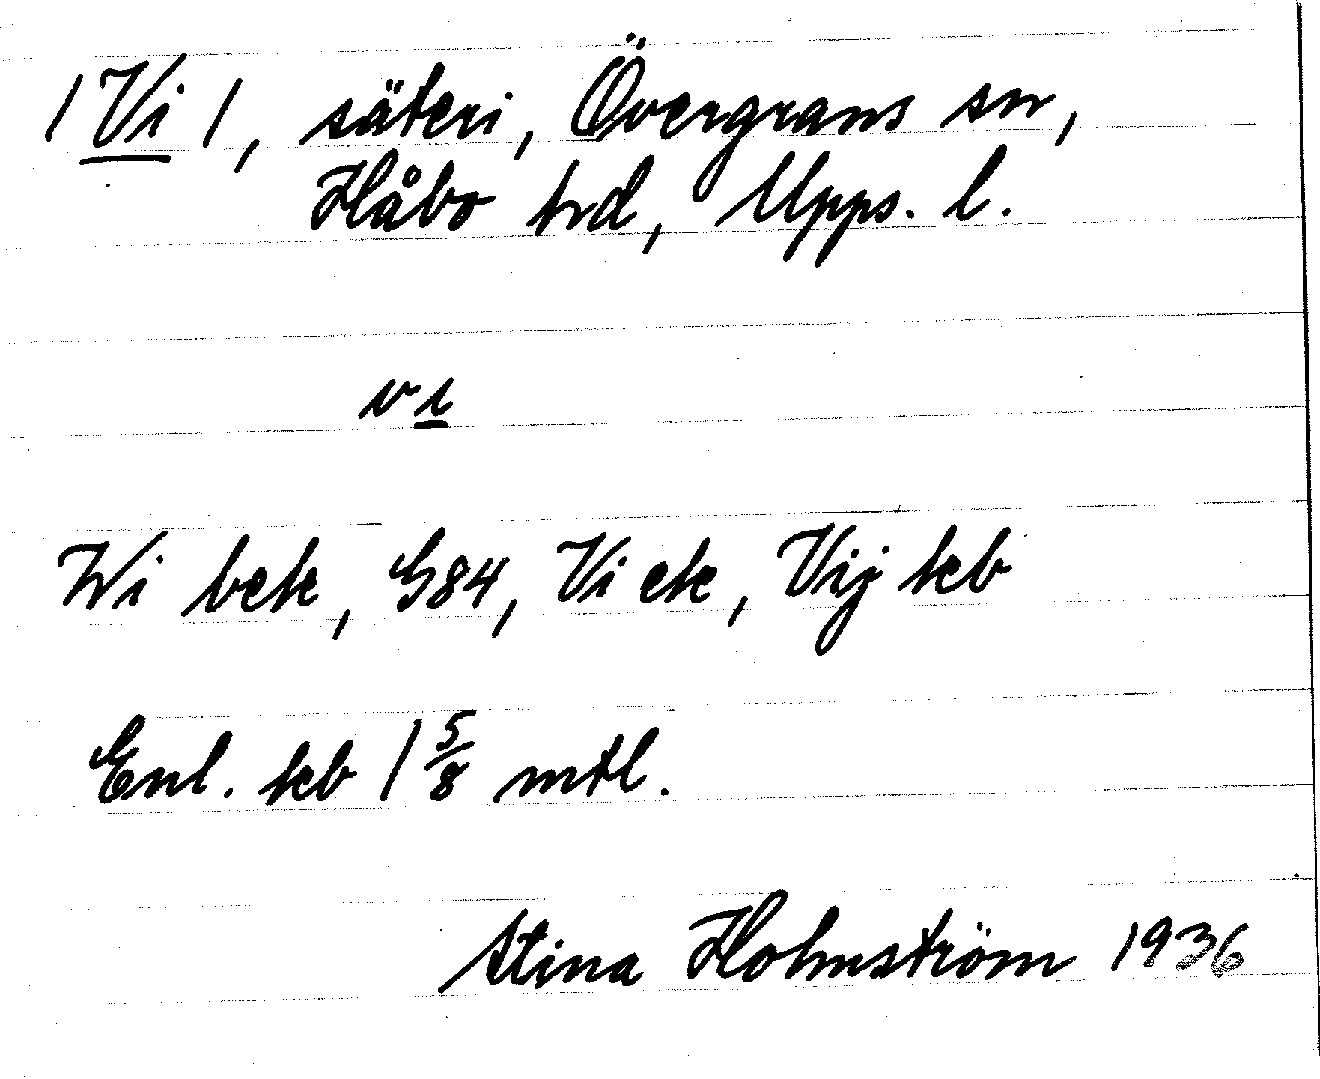 /Vi/, säteri, Övergrans sn,
Håbo hd, Upps. l.
vi
Wi bek, G84, Vi ek, Vij kb
Enl. kb 1 5/8 mtl.
Stina Holmström 1936